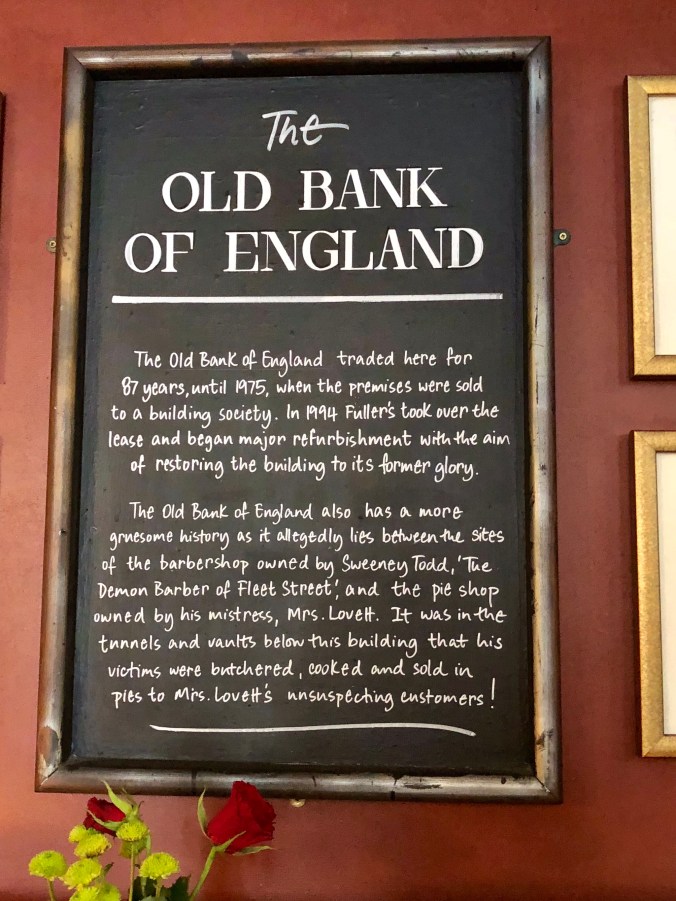 The
OLD BANK
OF ENGLAND
The Old Bank of England traded here for
87 years, until 1975, when the premises were sold
to a building society. In 1994 Fuller's took over the
lease and began major refurbishment with the aim
of restoring the building to its former glory.
The Old Bank of England also has a more
gruesome history as it allegedly lies between the sites
of the barbershop owned by Sweeney Todd, 'The
Demon Barber of Fleet Street', and the pie shop
owned by his mistress, Mrs. Lovett. It was in the
tunnels and vaults below this building that his
victims were butchered, cooked and sold in
pies to Mrs. Lovett's unsuspecting customers!